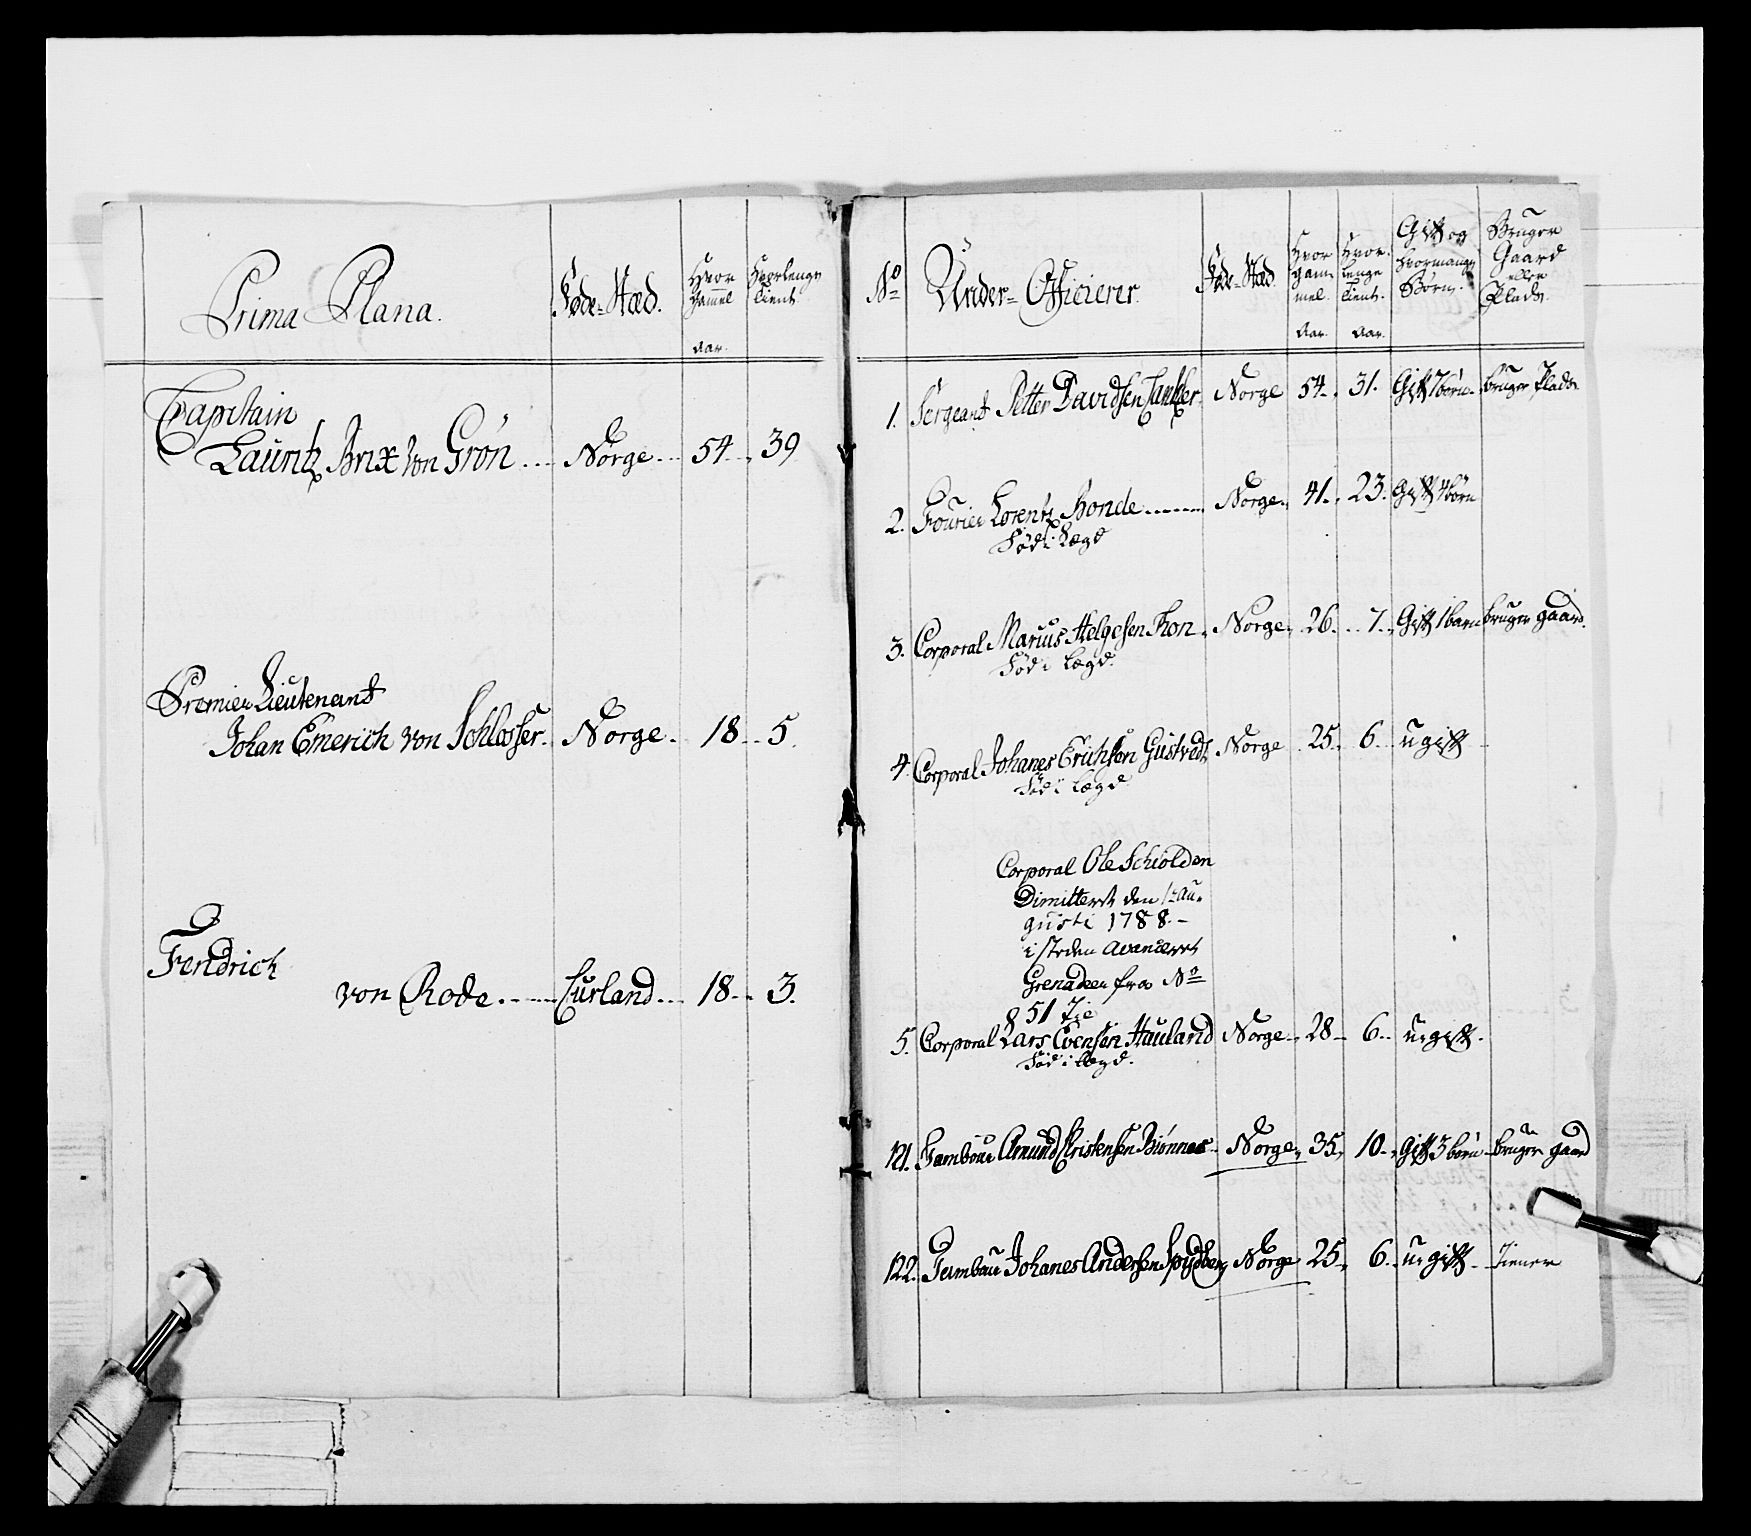 Prima Plana.
Føde-Stæd.
Hvor
Gammel
Aar.
Hvorlenge
tient
Capitain
Lauritz Brix von Grøn .... Norge... 54. 39
Premier Lieutenant
Johan Emerich von Schlosser. Norge. 18. 5.
Fendrich
von Rode. Curland... 18. 3.
No
Under-Officierer.
Føde-Stæd.
Hvor
gam-
mel.
Aar.
Hvor
lenge
tient.
Aar.
Gift og
hvormange
Børn.
Bruger
Gaard
eller
Plads.
1. Sergeant Petter Davidsen Norge 54. 31. Gift 7 børn. bruger Plads
2. Fourier Lorentz Bonde........ Norge. 41. 23. Gift 4 børn
Fød i Lægd
3. Corporal Marius Helgesen Norge. 26. 7. Gift 1 barn bruger gaard.
Fød i Lægd.
4. Corporal Johanes Erichsen Gustvedt Norge 25. 6. ugift
Fød i Lægd.
Corporal Ole Schiolden
Dimittert den 1te Au-
gusti 1788.-
i steden avanceret
Grenadeer fra No
51
5. Corporal Lars Evensen Hauland Norge. 28 6. ugift.
Fød i Lægd.
121. Tambour Amund Christensen Biønnes Norge. 35. 10. Gift 3 børn bruger gaard
122. Tambour Johanes Andersen Spydberg Norge 25. 6. ugift. Tiener